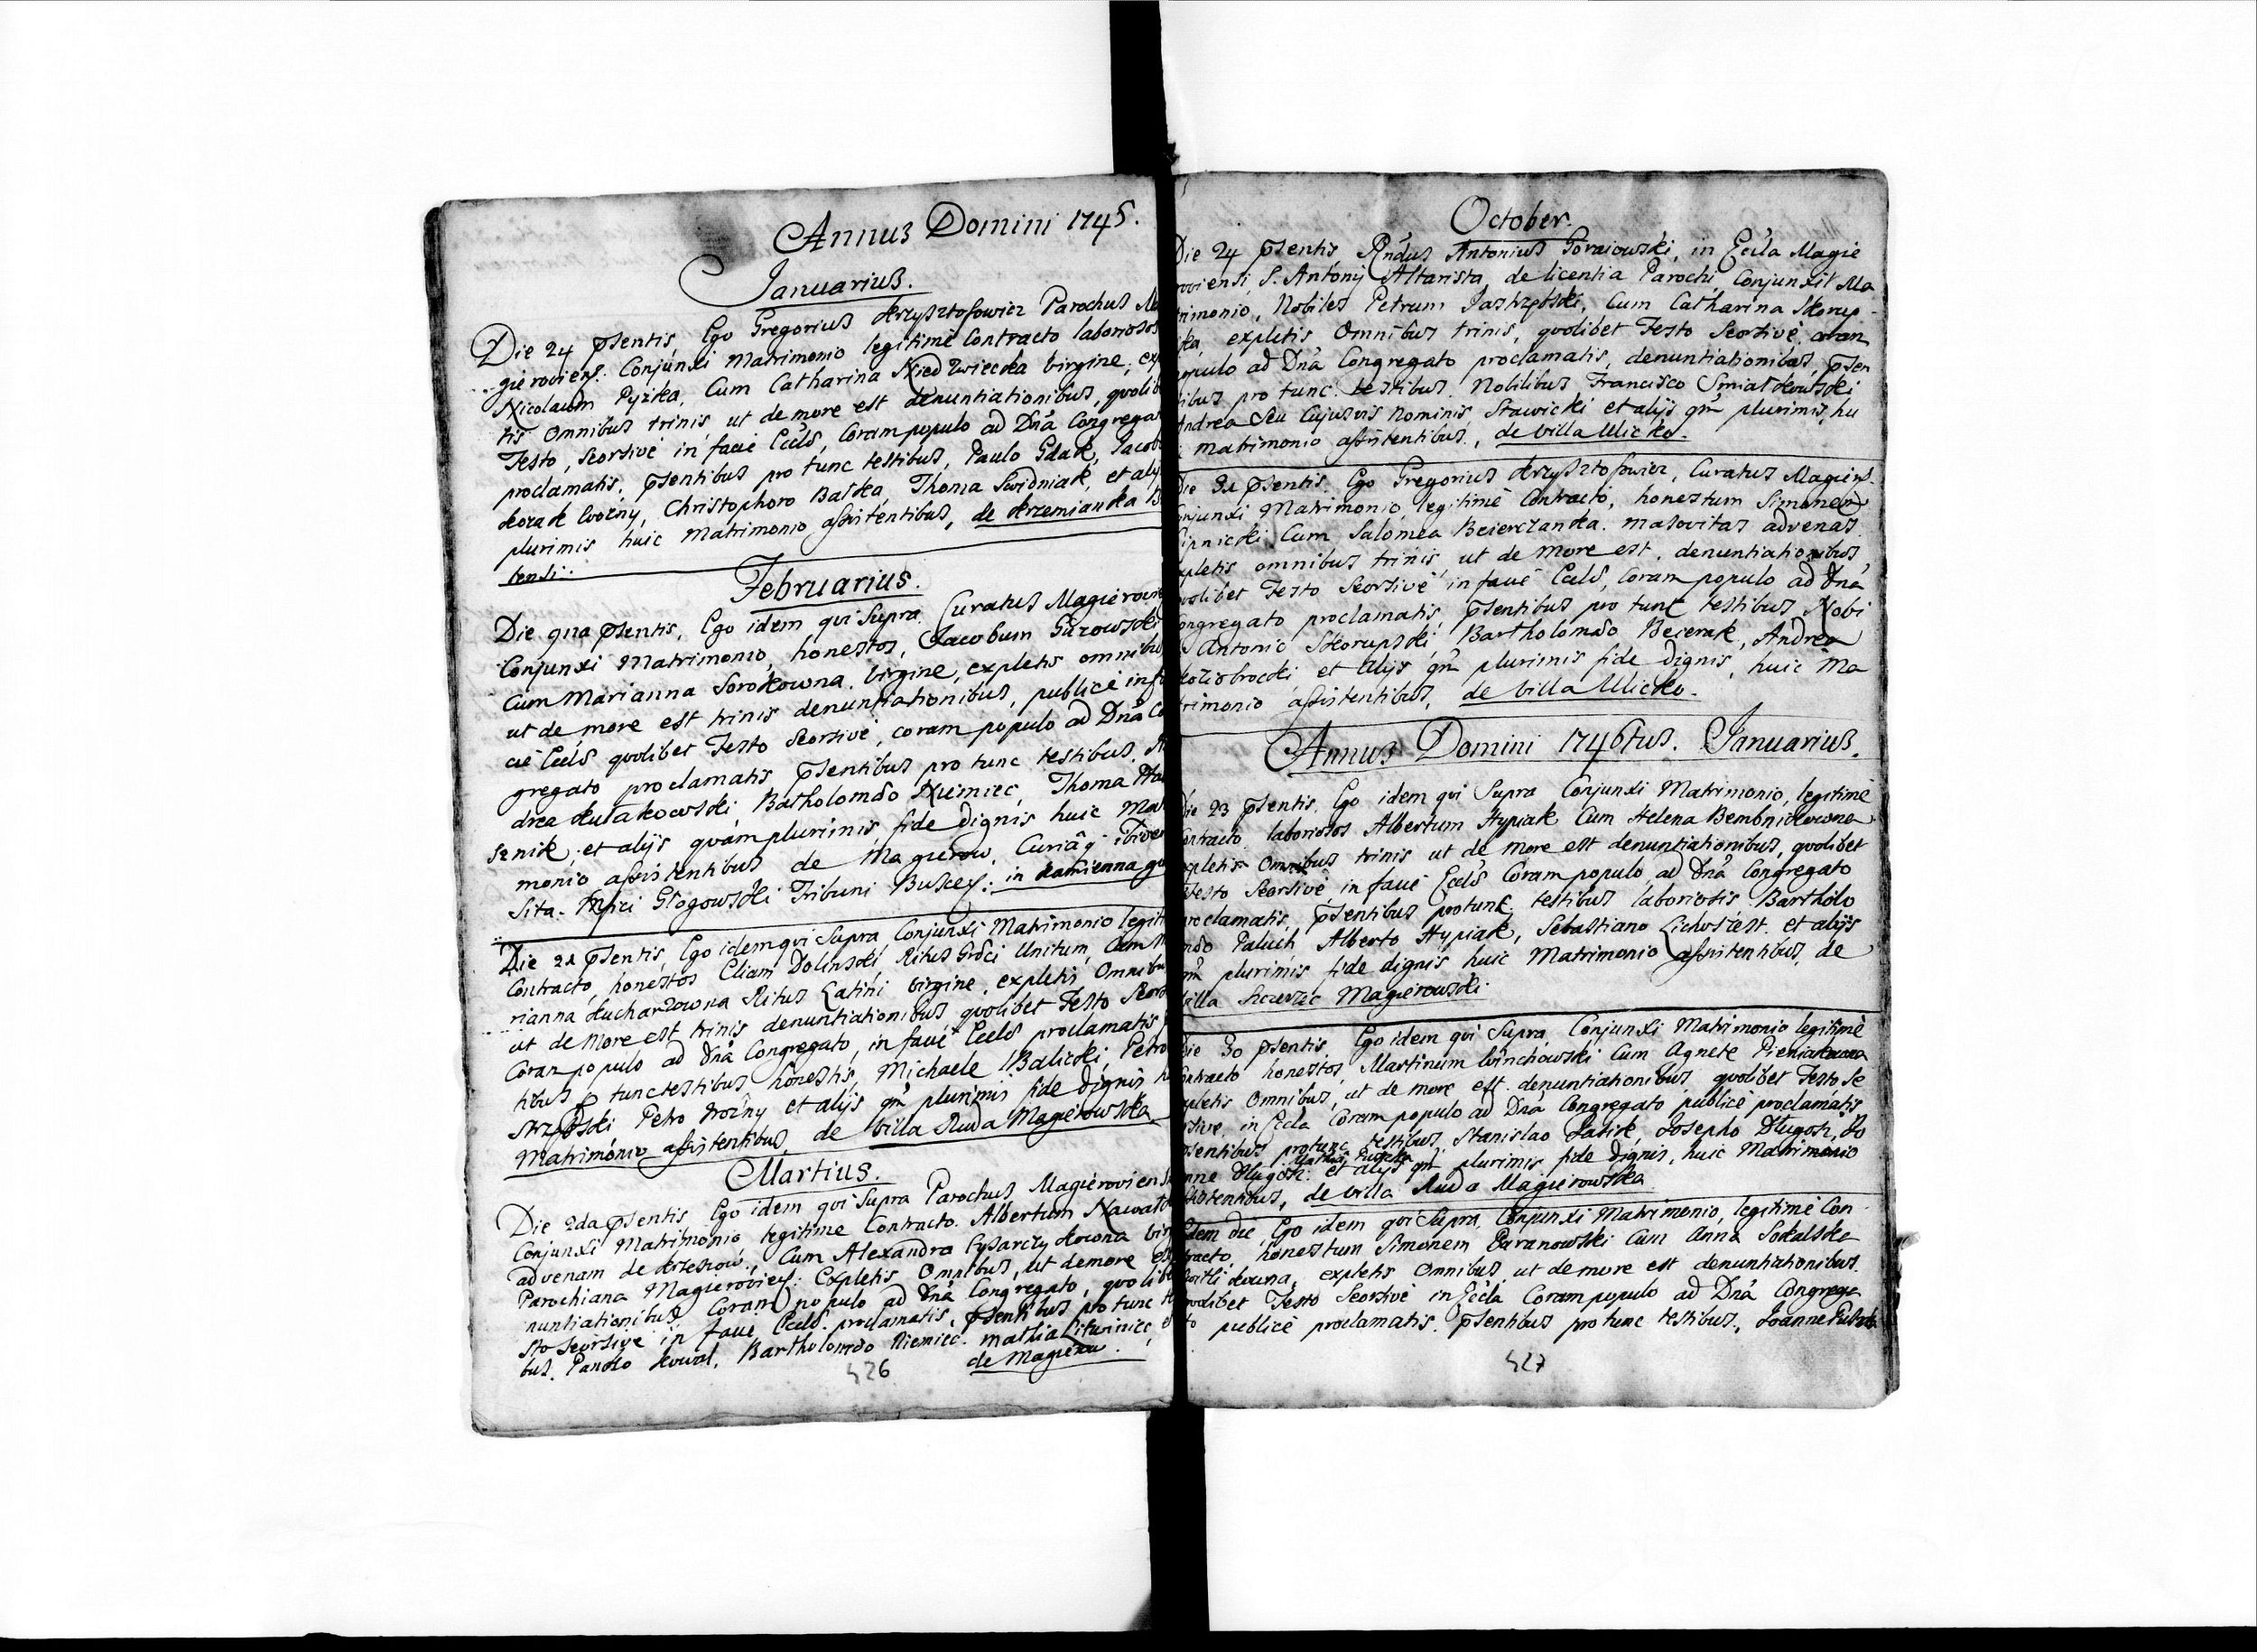 Annus Domini 1745.
Januarius.
Die 24 psentis Ego Gregorius Krzysztofowicz Parochus Ma
gieroviens. Conjunxi Matrimonio legitimè Contracto laboriosos
Nicolaum Pyzka, Cum Catharina Niedzwiecka virgine, exple
tis Omnibus trinis ut de more est denuntiationibus, quolibet
Festo, Seorsivè in facie Eccls, Coram populo ad Dnã Congregato
proclamatis, psentibus pro tunc testibus, Paulo Gdak, Jacobo
Kozak Woźny, Christophoro Batka, Thoma Swidniak, et alys
plurimis huic Matrimonio assistentibus, de Krzemianka
tensi:
Februarius.
Die 9na psentis, Ego idem qui Supra Curatus Magierovie
Conjunxi Matrimonio, honestos, Jacobum Gurowski
Cum Marianna Sorokowna, virgine, expletis omnibus
ut de more est trinis denuntiationibus, publicè in fa
cie Eccls quolibet Festo Seorsivè, coram populo ad Dnã Con
gregato proclamatis psentibus pro tunc testibus, An
drea Kułakowski, Batholomæo Niemiec, Thoma
sznik, et alijs quàm plurimis fide dignis huic Matri
monio assistentibus de Magierow, Curiâq
Sita. Mfici Głogowski Tribuni Buscen: in Kamienna go
Die 21 psentis, Ego idem qui Supra Conjunxi Matrimonio legiti
Contracto, honestos Eliam Dolinski, Ritus Græci Unitum, Cum Ma
rianna Kucharzowna Ritus Latini virgine, expletis Omnibus
ut de More est trinis denuntiationibus quolibet Festo Seors
Coram populo ad Dnã Congregato, in facie Eccls proclamatis
tibus p tunc testibus honestis, Michaele Balicki, Petro
strzębski Petro Woźny et alijs qm plurimis fide dignis hu
Matrimonio assistentibus, de villa Ruda Magierowska
Martius.
Die 2da psentis Ego idem qui Supra Parochus Magieroviens
Conjunxi Matrimonio legitime Contracto. Albertum Nawało
advenam de Krzeszow, Cum Alexandra Cysarczykowna virg
Parochiana Magierovien: Expletis Omnibus, ut de more est
nuntiationibus, Coram populo ad Dnã Congregato, quolibet
sto Seorsivè in facie Eccls. proclamatis, psentibus pro tunc te
bus, Panko Kowal, Bartholomæo Niemiec. Mathia Litwiniec, e
de Magierow.
426
October.
Die 24 psentis Rndus Antonius Goraiowski, in Eccla Magie
roviensi S. Antonij Altarista, de licentia Parochi, Conjunxit Ma
trimonio, Nobiles Petrum Jastrzębski, Cum Catharina Skorup
ska, expletis Omnibus trinis, quolibet Festo Seorsivè, coram
populo ad Dnã Congregato proclamatis, denuntiationibus, psen
tibus pro tunc testibus Nobilibus Francisco Smiałkowski
Andrea Seu Cujusvis Nominis Stawicki et alijs qm plurimis, hu
matrimonio assistentibus, de villa Ulicko.
Die 31 psentis, Ego Gregorius Krzysztofowicz, Curatus Magiers.
Conjunxi Matrimonio legitimè Contracto, honestum Simonem
Lipnicki Cum Salomea Beierczanka. masovitas advenas
expletis omnibus trinis, ut de more est, denuntiationibus,
quolibet Festo Seorsivè in facie Eccls, Coram populo ad Dnã
Congregato proclamatis, psentibus pro tunc testibus Nobi
Antonio Skorupski, Bartholomæo Becerak, Andrea
Koziobrocki et alijs qm plurimis fide dignis, huic Ma
trimonio assistentibus, de villa Ulicko.
Annus Domini 1746tus. Januarius.
Die 23 psentis, Ego idem qui Supra Conjunxi Matrimonio, legitimè
Contracto laboriosos Albertum Hypiak Cum Helena Bembnickowna
expletis Omnibus trinis ut de More est denuntiationibus, quolibet
Festo Seorsivè, in facie Eccls Coram populo, ad Dnã Congregato
proclamatis, psentibus protunc, testibus laboriosis Bartholo
mæo Paluch, Alberto Hypiak, Sebastiano et alijs
qm plurimis fide dignis huic Matrimonio assistentibus, de
villa Szczerzec Magierowski.
Die 30 psentis. Ego idem qui Supra, Conjunxi Matrimonio legitimè
Contracto honestos, Martinum Winchowski Cum Agnete Pieniakowna
expletis Omnibus, ut de more est denuntiationibus quolibet Festo Se
orsive, in Eccla Coram populo ad Dnã Congregato publicè proclamatis
psentibus protunc testibus, Stanislao Łasik, Josepho Długosz, Jo
anne Długosz. et alijs qm plurimis fide dignis, huic Matrimonio
assistentibus, de villa Ruda Magierowska
Eadem die Ego idem qui Supra, Conjunxi Matrimonio, legitimè Con
tracto, honestum Simonem Baranowski Cum Anna Sokalska
expletis Omnibus ut de more est denuntiationibus.
quolibet Festo Seorsivè in Eccla Coram populo ad Dnã Congrega
to publicè proclamatis. psentibus pro tunc testibus, Joanne
427